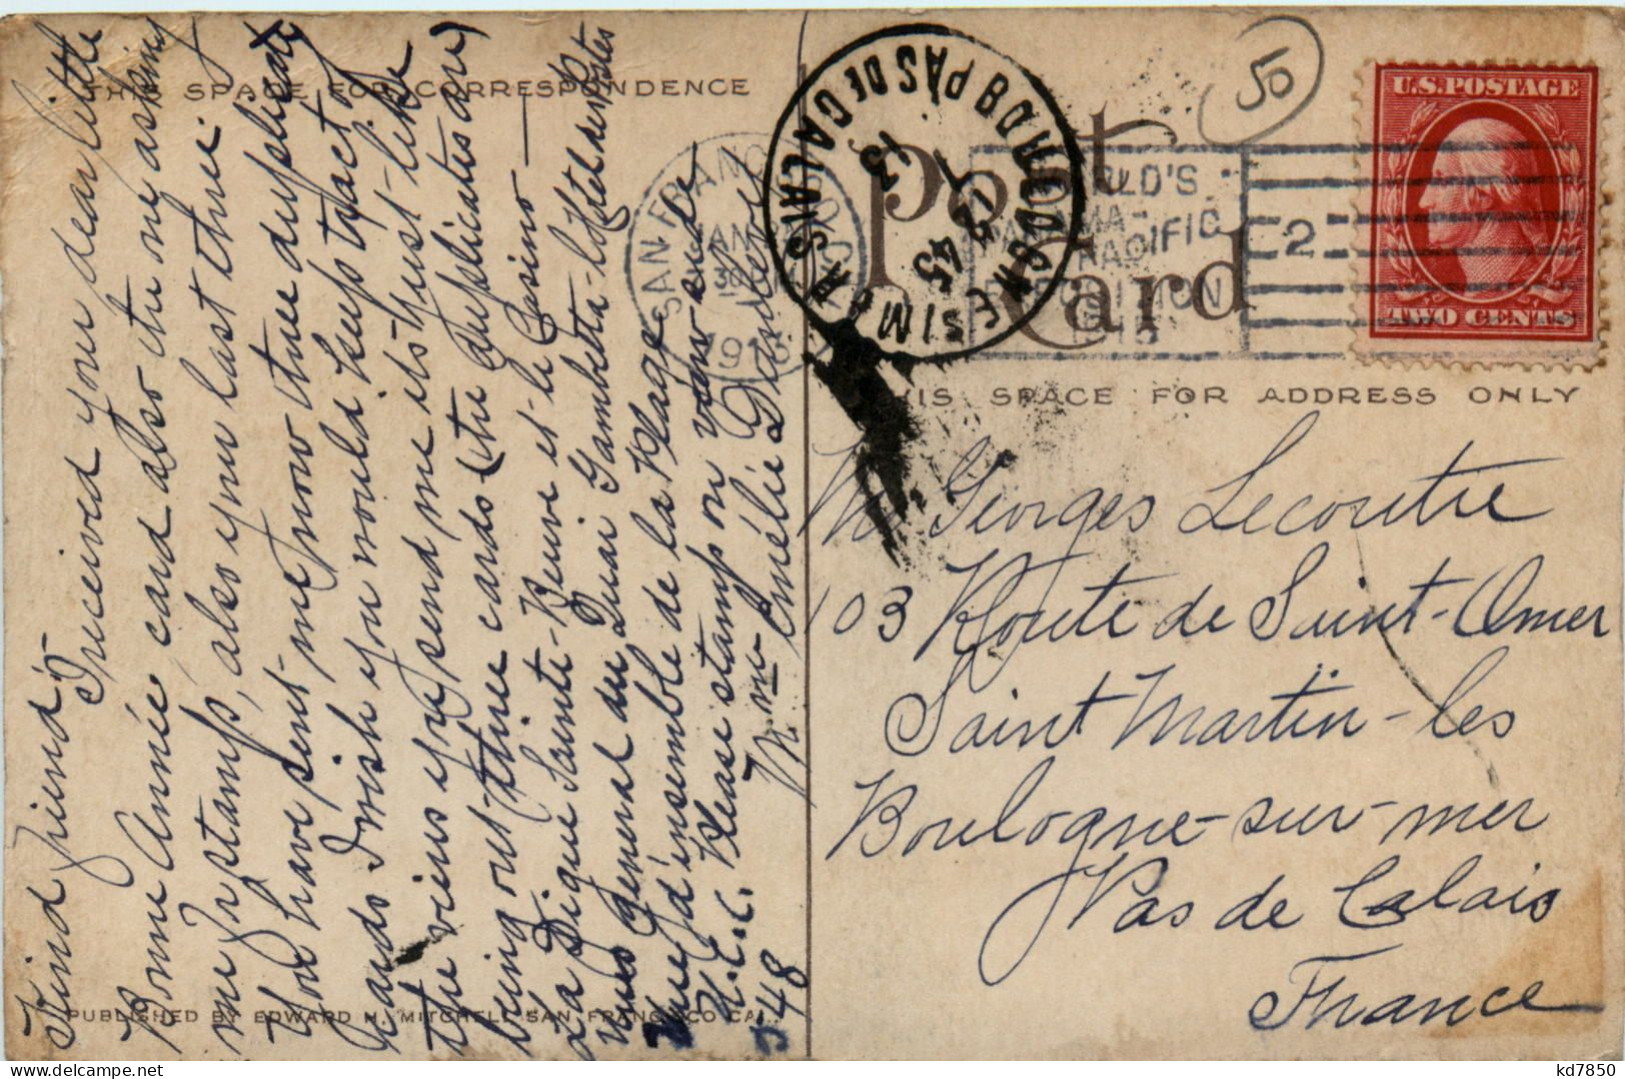 THIS SPACE FOR CORRESPONDENCE
Post
Card
THIS SPACE FOR ADDRESS ONLY
Kind friend:-
I received your dear little
Bonne Année card also the one asking
me for stamps, also your last three.
You have sent me now three duplicate
cards I wish you would keep tract of
the views you send me its just like
being out three cards (the duplicates are)
La Digue Sainte-Beuve et le Casino —
Vue general du Quai Gambetta-Hotel des Postes
Vue d'insemble de la Plage
H.C.C. Please stamps on view side
5 48
Mme Amélie
Mr Georges Lecoutre
103 Route de Saint-Omer
Saint Martin-les
Boulogne-sur-mer
Pas de Calais
France
U.S. POSTAGE
TWO CENTS
SAN FRANCISCO
JAN
30
WORLD'S
PANAMA-
PACIFIC
EXPOSITION
1915
2
BOULOGNE S/MER PAS DE CALAIS
45
13
50
PUBLISHED BY EDWARD H. MITCHELL SAN FRANCISCO CAL.
kd7850